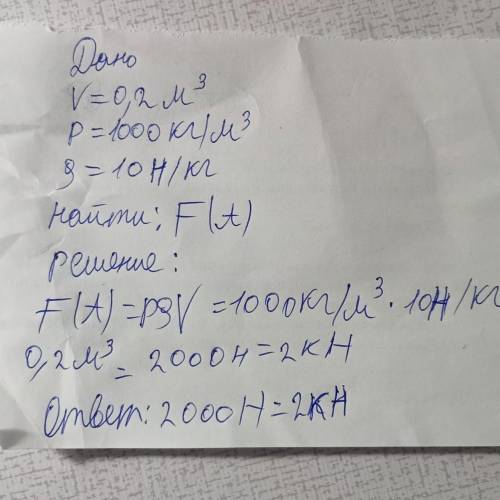 Дано
V=0,2 м³
P=1000 кг/м³
g=10 Н/кг
найти: F(A)
решение:
F(A)=PgV=1000кг/м³·10Н/кг
0,2 м³ = 2000н=2кН
Ответ: 2000Н=2кН